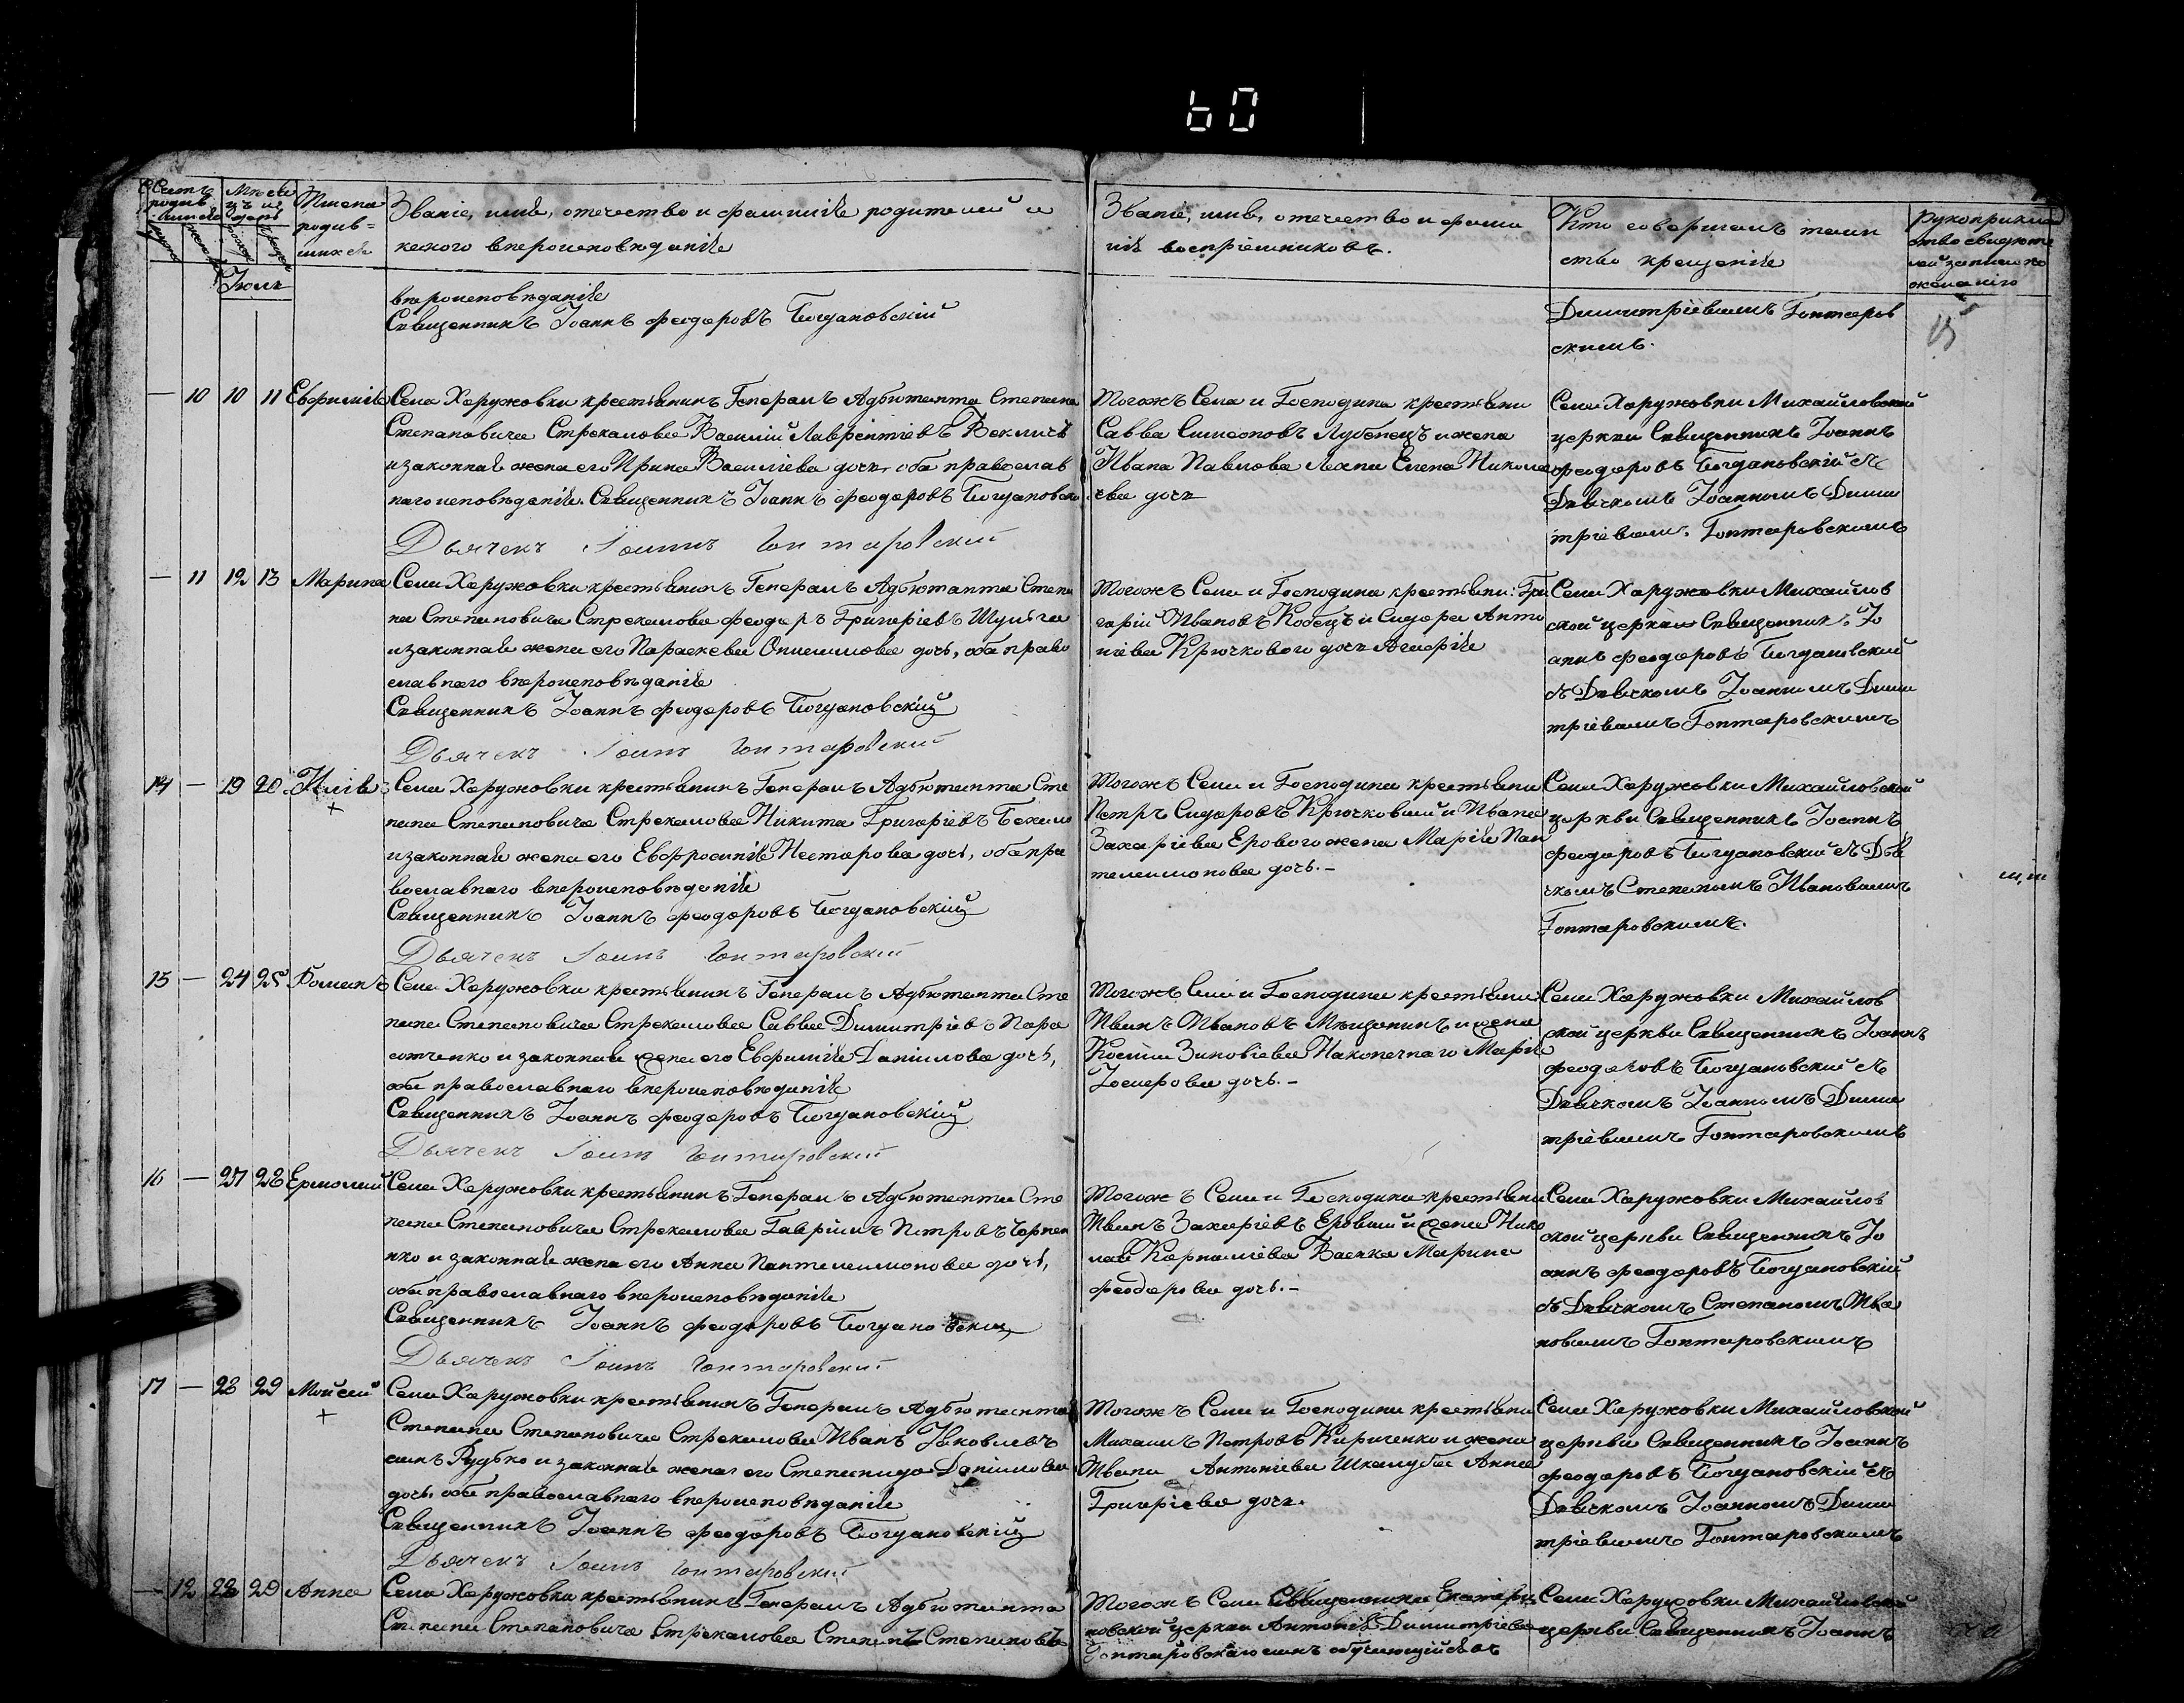 60
Счетъ родив-шихся
Мѣсяцъ и день
Имена родив=шихся
Званіе, имя, отечество и фамилія родителей и
какого вѣроисповѣданія
Званіе, имя, отечество и фами
лія воспріемниковъ.
Кто совершалъ таин
ство крещенія
рукоприклад
ство свидѣте
лей записи по
желанію
Іюль
вѣроисповѣданія
Священникъ Іоаннъ Феодоровъ Богдановскій
Димитріевымъ Гонтаров
скимъ.
— 10 10 11 Евфимія
Села Харужовки крестьянинъ Генералъ Адъютанта Степана
Степановича Стрекалова Василій Лаврентіевъ Векличъ
и законная жена его Ирина Василіева дочь, оба православ
наго исповѣданія. Священникъ Іоаннъ Феодоровъ Богдановскій
Дьячекъ Іоаннъ Гонтаровскій
Тогожъ Села и Господина крестьяни
Савва Симеоновъ Лубенецъ и жена
Ивана Павлова Ляхи Елена Никола
ева дочь
Села Харужовки Михайловской
церкви Священникъ Іоаннъ
Феодоровъ Богдановскій съ
Дьячкомъ Іоанномъ Дими
тріевым. Гонтаровскимъ
— 11 12 13 Марина
Села Харужовки крестьянинъ Генералъ Адъютанта Степа
на Степановича Стрекалова Феодоръ Григоріевъ Шульга
и законная жена его Параскева Онисимова дочь, оба право
славнаго вѣроисповѣданія
Священникъ Іоаннъ Феодоровъ Богдановскій
Дьячекъ Іоаннъ Гонтаровскій
Тогожъ Села и Господина крестьяни: Гри
горій Ивановъ Кобецъ и Сидора Анто
ніева Крючковаго дочь Агафія
Села Харужовки Михайлов
ской церкви Священник: Іо
аннъ Феодоровъ Богдановскій
съ Дьячкомъ Іоанномъ Дими
тріевымъ Гонтаровскимъ
14 — 19 20 Илія
+
Села Харужовки крестьянинъ Генералъ Адъютанта Сте
пана Степановича Стрекалова Никита Григоріевъ
и законная жена его Евфросинія Нестерова дочь, оба пра
вославнаго вѣроисповѣданія
Священникъ Іоаннъ Феодоровъ Богдановскій
Дьячекъ Іоаннъ Гонтаровскій
Тогожъ Села и Господина крестьяни
Петръ Сидоровъ Крючковый и Ивана
Захаріева Ероваго жена Марія Пан
телеимонова дочь.-
Села Харужовки Михайловской
церкви Священникъ Іоаннъ
Феодоровъ Богдановскій съ Дья
чкомъ Степаномъ Ивановымъ
Гонтаровскимъ.
15 — 24 25 Романъ
Села Харужовки крестьянинъ Генералъ Адъютанта Сте
пана Степановича Стрекалова Савва Димитріевъ Пара
сотченко и законная жена его Евфимія Даніилова дочь,
оба православнаго вѣроисповѣданія
Священникъ Іоаннъ Феодоровъ Богдановскій
Дьячекъ Іоаннъ Гонтаровскій
Тогожъ Села и Господина крестьяни
Иванъ Ивановъ Мѣщанинъ и жена
Косьмы Зиновіева Наконечнаго Марія
Іосифова дочь.-
Села Харужовки Михайлов
ской церкви Священникъ Іоаннъ
Феодоровъ Богдановскій съ
Дьячкомъ Іоанномъ Дими
тріевымъ Гонтаровскимъ
16 — 27 28 Ермолай
Села Харужовки крестьянинъ Генералъ Адъютанта Сте
пана Степановича Стрекалова Гавріилъ Петровъ Чорнен
нко и законная жена его Анна Пантелеимонова дочь,
оба православнаго вѣроисповѣданія
Священникъ Іоаннъ Феодоровъ Богдановскій
Дьячекъ Іоаннъ Гонтаровскій
Тогожъ Села и Господина крестьяни
Иванъ Захаріевъ Еровый и жена Нико
лая Карналіева Васька Марина
Феодорова дочь.-
Села Харужовки Михайлов
ской церкви Священникъ Іо
аннъ Феодоровъ Богдановскій
съ Дьячкомъ Степаномъ Ива
новымъ Гонтаровскимъ
17 — 28 29 Мойсей
+
Села Харужовки крестьянинъ Генералъ Адъютанта
Степана Степановича Стрекалова Иванъ Яковлевъ
сынъ Рудько и законная жена его Степанида Даніилова
дочь, оба православнаго вѣроисповѣданія
Священникъ Іоаннъ Феодоровъ Богдановскій
Дьячекъ Іоаннъ Гонтаровскій
Тогожъ Села и Господина крестьяни
Михаилъ Петровъ Кириченко и жена
Ивана Антоніева Шкалубы Анна
Григоріева дочь.
Села Харужовки Михайловской
церкви Священникъ Іоаннъ
Феодоровъ Богдановскій съ
Дьячкомъ Іоанномъ Дими
тріевымъ Гонтаровскимъ
— 12 28 29 Анна
Села Харужовки крестьянинъ Генералъ Адъютанта
Степана Степановича Стрекалова Степанъ Степановъ
Тогожъ Села Священника Екатери
новской церкви Антонія Димитріева
Гонтаровскаго сынъ обучающійся въ
Села Харужовки Михайловской
церкви Священникъ Іоаннъ